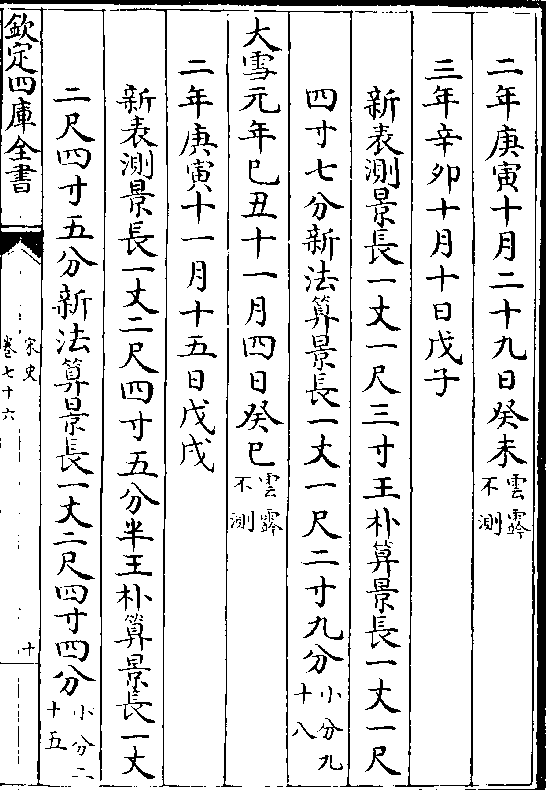 二年庚寅十月二十九日癸未雲霧不測
三年辛卯十月十日戊子
新表測景長一丈一尺三寸王朴算景長一丈一尺
四寸七分新法算景長一丈一尺二寸九分小分九十八
大雪元年已丑十一月四日癸巳雲霧不測
二年庚寅十一月十五日戊戌
新表測景長一丈二尺四寸五分半王朴算景長一丈
二尺四寸五分新法算景長一丈二尺四寸四分小分二十五
欽定四庫全書
宋史
卷七十六
十